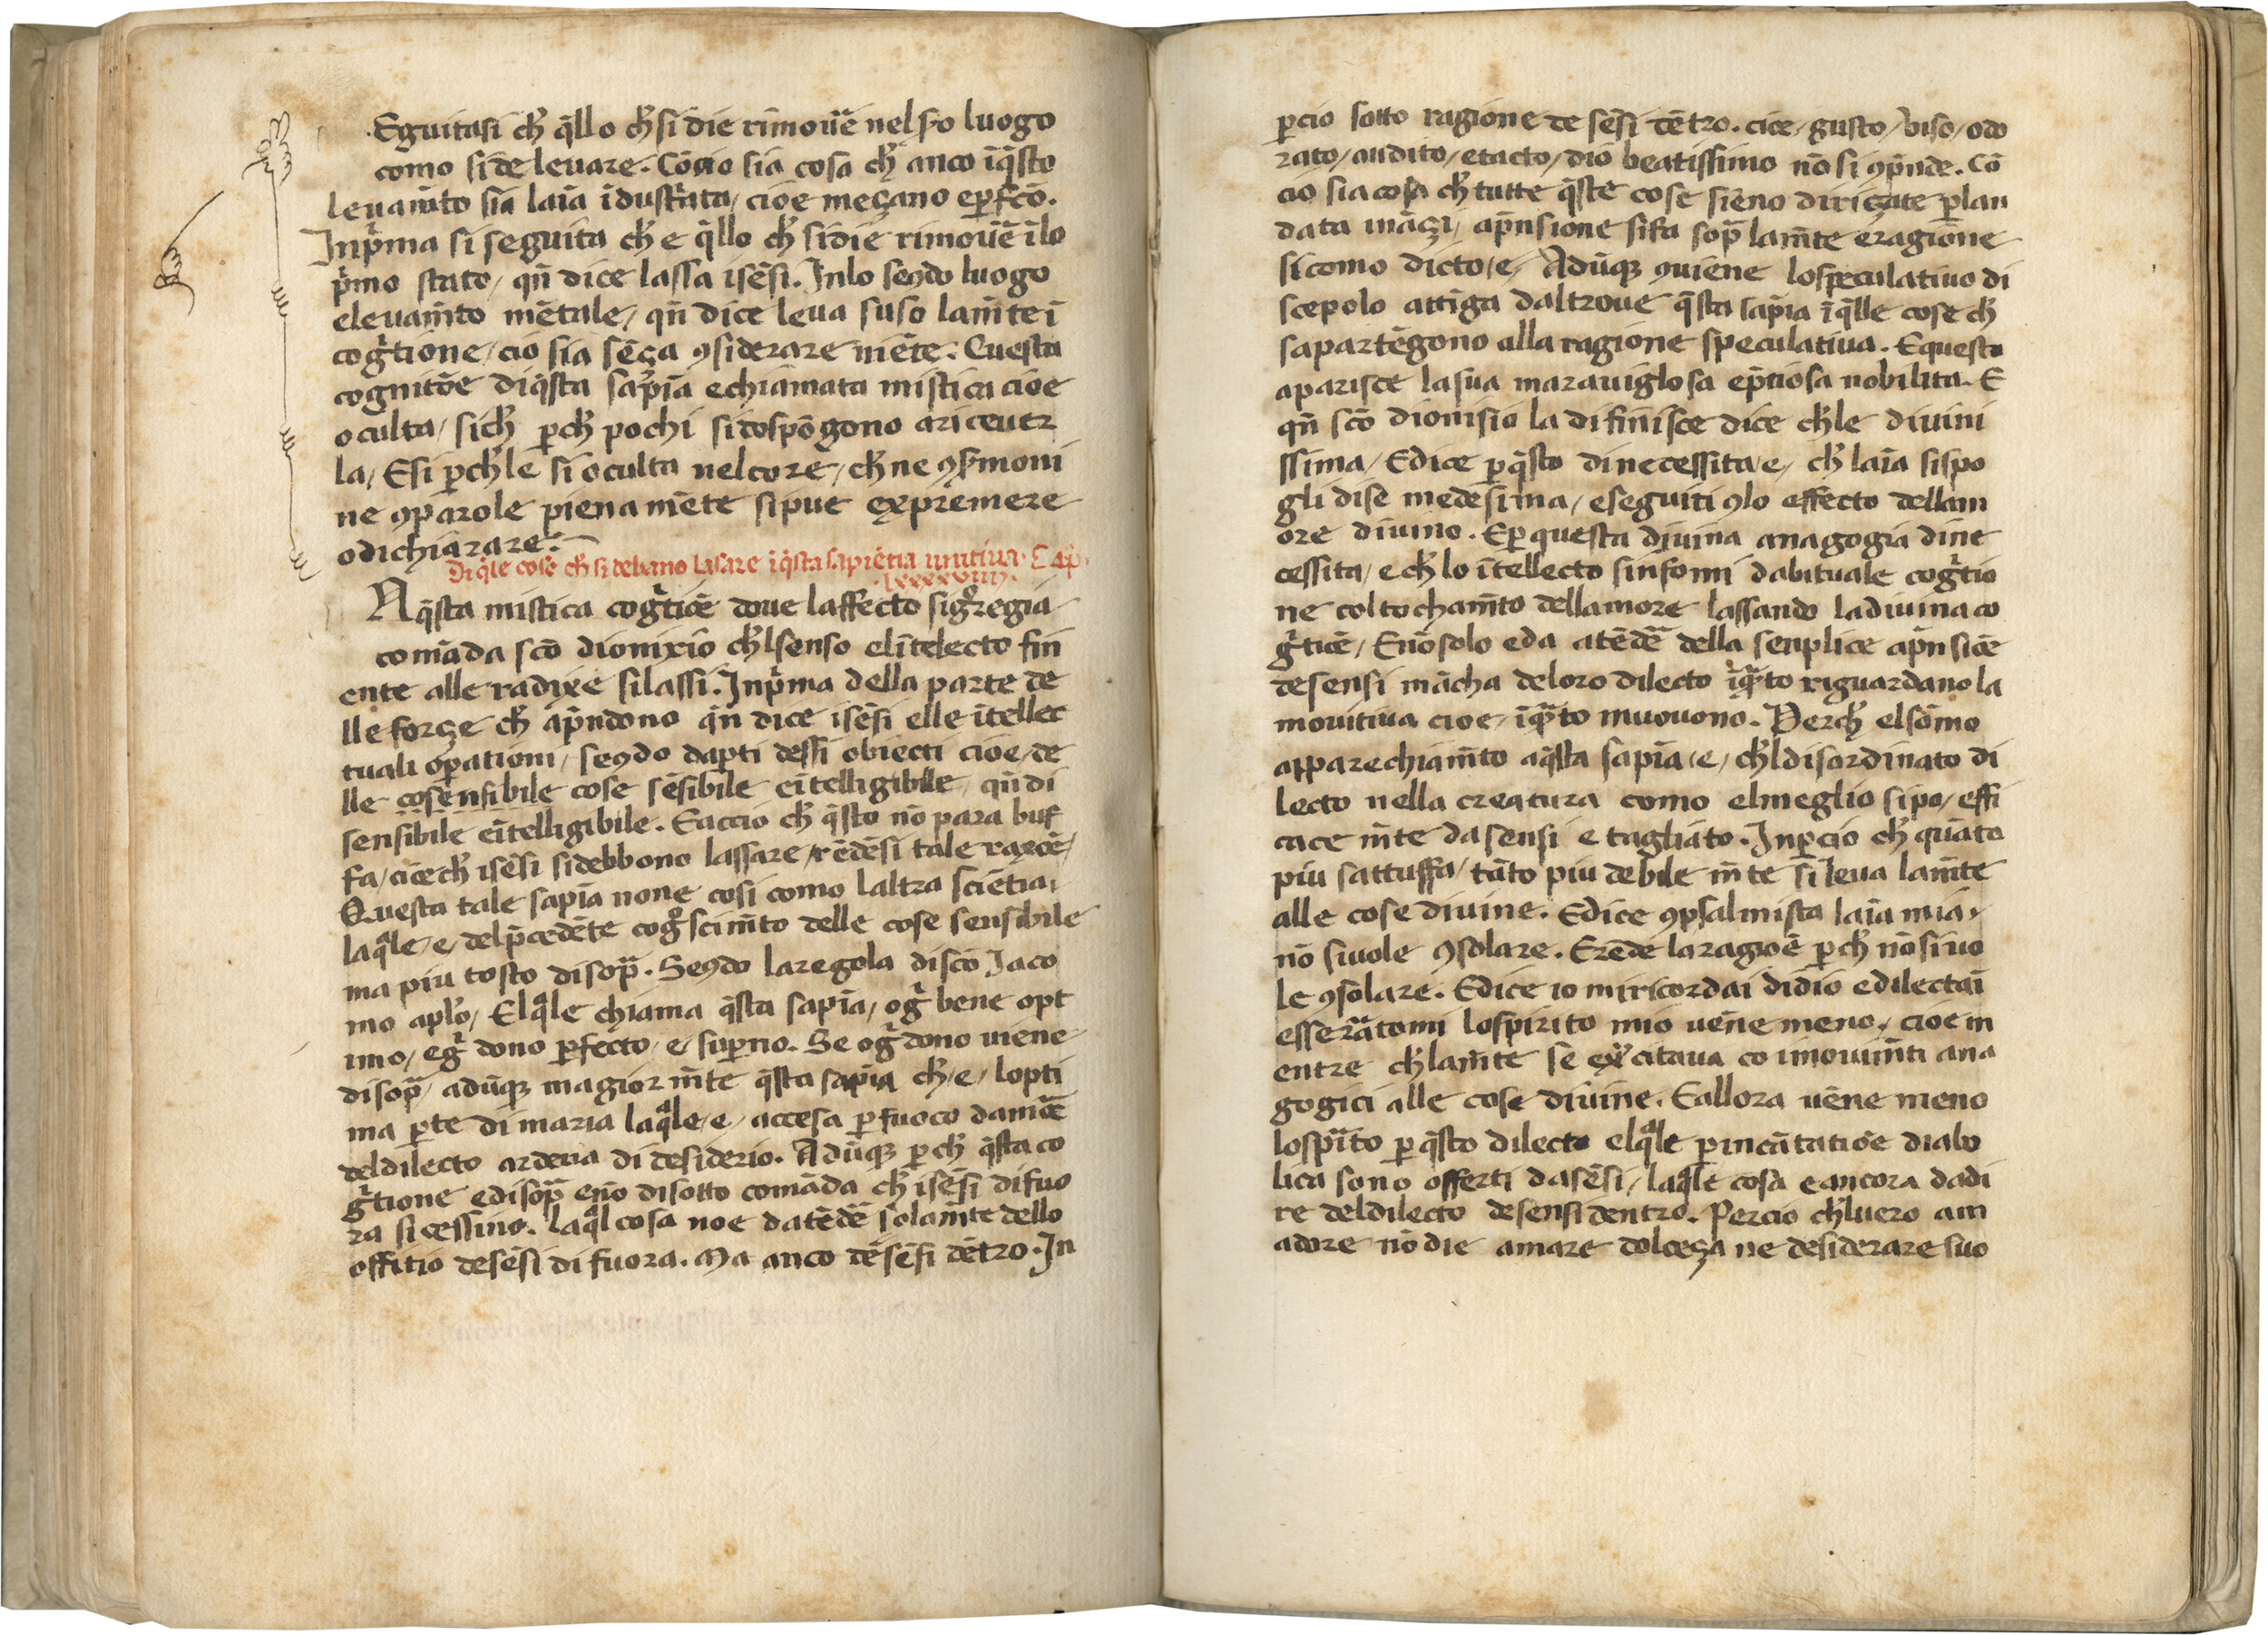 Eguitasi ch̄ q̄llo ch̄ si die rimovē nel so luogo
como si de levare. Cōcio sia cosa ch̄ anco īq̄sto
levam̄to sia laīa īdustrata / cioe meçano e ꝑfc̄o.
Inp̄ma si seguita ch̄ e q̄llo ch̄ si die rimovē īlo
p̄mo stato / qn̄ dice lassa isēsi. Inlo seꝯdo luogo
elevam̄to mētale / qn̄ dice leva suso lam̄te ī
coḡtione / cio sia sēça ꝯsiderare niēte. Questa
cognitōe diq̄sta sap̄ia e chiāmata mistica cioe
oculta / sich̄ ꝑch̄ pochi si dospōgono a ricever
la / E si ꝑch̄ le si oculta nel core / ch̄ ne ꝯsermoni
ne ꝯparole piena mēte si pue exprēmere
o dichiarare.
Di q̄le cose ch̄ si debano lasare ī q̄sta sapiētia unitiva. Cap̄.
lxxxxviiii.
A q̄sta mistica coḡtiōe dove laffecto sig̊regia
comāda sc̄o dionixio ch̄l senso el ītelecto fin
ente alle radixe si lassi. Inp̄ma della parte de
lle forçe ch̄ ap̄ndono qn̄ dice isēsi elle ītellec
tuali oꝑationi / seꝯdo da ꝑti dessi obiecti cioe / de
lle cosensibile cose sēsibile e ītelligibile / qn̄ di
sensibile e ītelligibile. E accio ch̄ q̄sto nō para buf
fa / cioe ch̄ isēsi si debbono lassare / rēdesi tale raxōe /
Questa tale sapīa none cosi como laltra sciētia /
laq̄le / e / del p̄cedēte cog̊scim̄to delle cose sensibile
ma piu tosto disop̄. Seꝯdo la regola di sc̄o Jaco
mo aplō / Elq̄le chiama q̄sta sapīa / oḡ bene opt
imo / e ḡ dono ꝑfecto / e / suꝑno. Se oḡ dono viene
disop̄ / adūqꝫ magior m̄te q̄sta sapīa ch̄ / e / lopti
ma ꝑte di maria laq̄le / e / accesa ꝑ fuoco damōe
del dilecto ardētia di desiderio. Adūqꝫ ꝑch̄ q̄sta co
ḡtione e disop̄ e nō disotto comāda ch̄ isēsi di fuo
ra si cessino. laq̄l cosa noe datēdē solam̄te dello
offitio de sēsi di fuora. Ma anco dē sēsi dētro. In
ꝑcio sotto ragione de sēsi dētro. cioe / gusto / viso / odo
rato / audito / e tacto / dio beatissimo nō si ꝯp̄nde. Cō
cio sia cosa ch̄ tutte q̄ste cose siēno diriçate ꝑ lan
data ināçi / ap̄nsione si fa sop̄ lam̄te e ragione
si como dicto / e / Adūqꝫ ꝯviene lo speculativo di
scepolo attiga daltrove q̄sta sapīa ī q̄lle cose ch̄
sapartēgono alla ragione speculativa. E questo
aparisce la sua maraviglosa e p̄tiosa nobilita. E
qn̄ sc̄o dionisio la difinisce dice ch̄le divini
ssima / E dice ꝑ q̄sto di necessita / e / ch̄ laīa si spo
gli di se medesima / e seguiti ꝯlo effecto dellam
ore divino. E ꝑ questa divina anagogia di ne
cessita / e ch̄ lo ītellecto sinformi dabituale coḡtio
ne col tocham̄to dellamore lassando la divina co
ḡtiōe / E nō solo e da atēdē della semplice ap̄nsiōe
de sensi māch̄a de loro dilecto īq̄to riguardano la
movitiva cioe / īq̄to muovono. Perch̄ el sōmo
apparechiam̄to a q̄sta sapīa / e / ch̄l disordinato di
lecto nella creatura como el meglio si po / effi
cace m̄te da sensi e tagliato. Inꝑcio ch̄ quāto
piu sattuffa / tāto piu debile m̄te si leva lam̄te
alle cose divine. E dice ꝯpsalmista laīa mia /
nō si vole ꝯsolare. E rēde la ragiōe ꝑch̄ nō si vo
le ꝯsolare. E dice io mi ricordai di dio e dilectai
e sserātomi lo spirito mio vēne meno / cioe m
entre ch̄ lam̄te se excitava co i movim̄ti ana
gogici alle cose divine. E allora vēne meno
lo spīto ꝑ q̄sto dilecto elq̄le ꝑ incātatiōe diabo
lica sono offerti da sēsi / laq̄le cosa e ancora da di
re del dilecto de sensi dentro. Percio ch̄l vero am
adore nō die amare dolceça ne desiderare suo